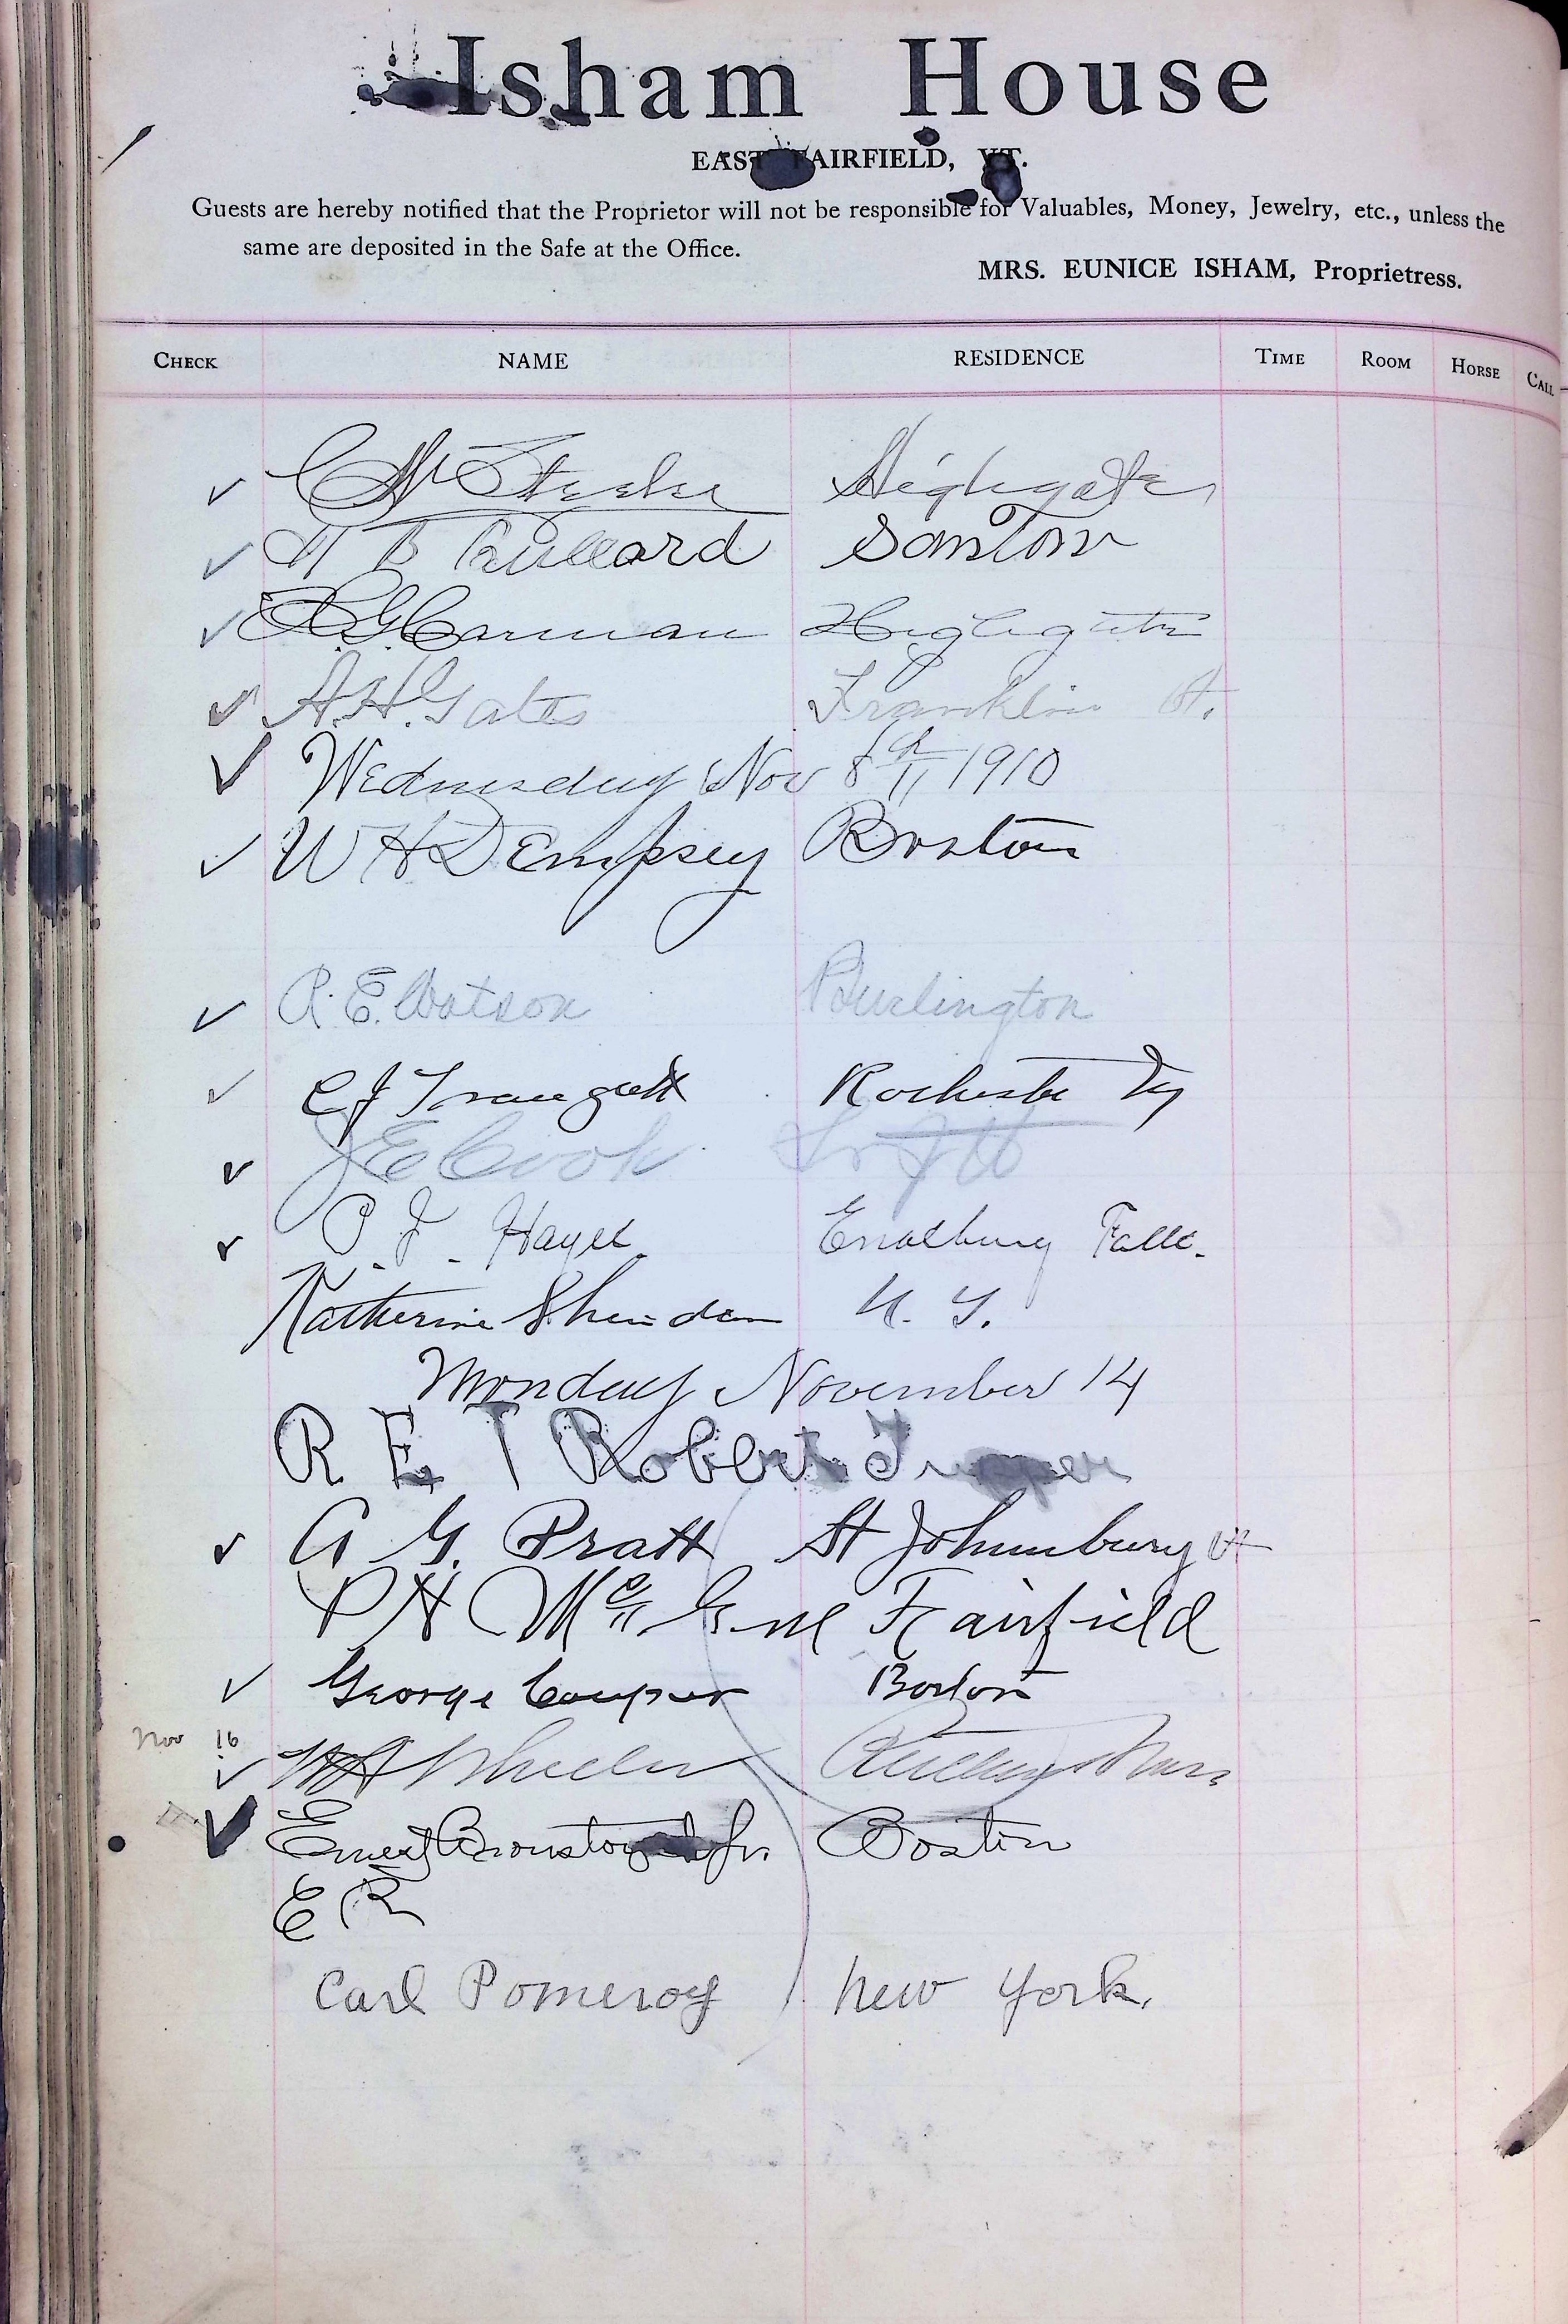 Isham House
EAST FAIRFIELD, VT.
Guests are hereby notified that the Proprietor will not be responsible for Valuables, Money, Jewelry, etc., unless the
same are deposited in the Safe at the Office.
MRS. EUNICE ISHAM, Proprietress.
CHECK NAME RESIDENCE TIME ROOM HORSE CALL
Highgate
H B
Carman Highgate
A.H. Gates Franklin Vt.
Wednesday Nov 8th 1910
W H Dempsey Boston
R. E. Watson Burlington
C J Rochester Ny
J E Cook
P. J. Hayes. Enosburg Falls.
Katherine Sheridan N. Y.
Monday November 14
R E T Robert
A G. Pratt St Johnsbury Vt
P H Mc Fairfield
George Couper Boston
Nov 16
W A Wheeler Mass
Jr. Boston
E R
Carl Pomeroy New York.